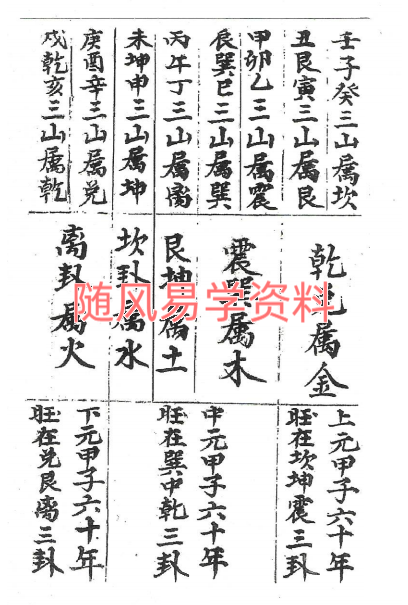 壬子癸三山属坎
丑艮寅三山属艮
甲卯乙三山属震
辰巽巳三山属巽
丙午丁三山属离
未坤申三山属坤
庚酉辛三山属兑
戌乾亥三山属乾
乾兑属金
震巽属木
艮坤属土
坎卦属水
离卦属火
随风易学资料
上元甲子六十年
旺在坎坤震三卦
中元甲子六十年
旺在巽中乾三卦
下元甲子六十年
旺在兑艮离三卦